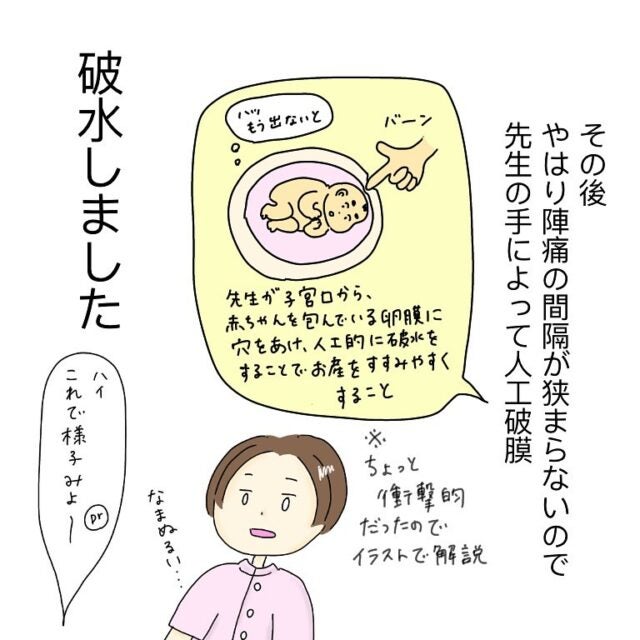 その後
やはり陣痛の間隔が狭まらないので
先生の手によって人工破膜
バーン
ハッ
もう出ないと
先生が子宮口から、
赤ちゃんを包んでいる卵膜に
穴をあけ、人工的に破水を
することでお産をすすみやすく
すること
破水しました
※
ちょっと
衝撃的
だったので
イラストで解説
なまぬるい…
ハイ
これで様子みよー
Dr